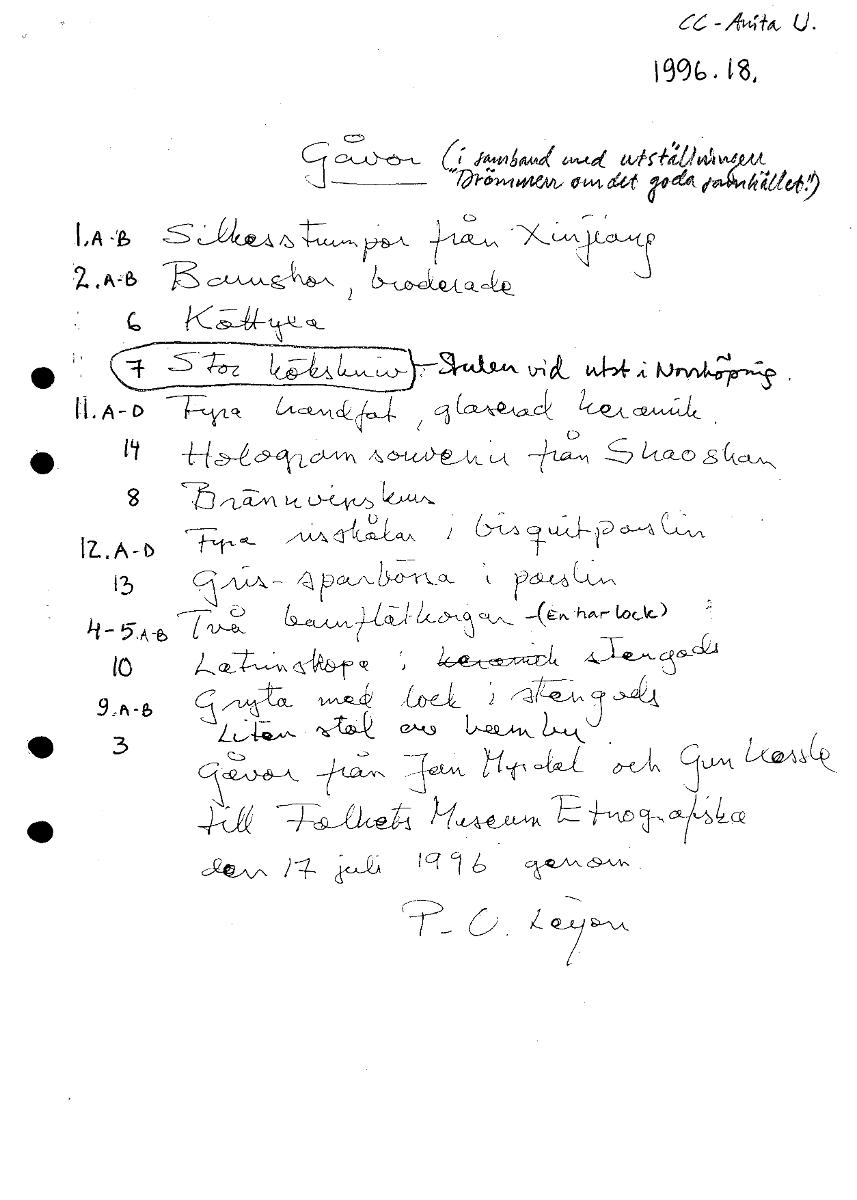 CC - Anita U.
1996.18.
Gåvor (i samband med utställningen
"Drömmen om det goda samhället")
1.A-B Silkesstrumpor från Xinjiang
2.A-B Barnskor, broderade
6 Köttyxa
7 Stor kökskniv - Stulen vid utst i Norrköping.
11.A-D Fyra handfat, glaserad keramik.
14 Hologramsouvenir från Shaoshan
8 Brännvinskrus
12.A-D Fyra risskålar i bisquitporslin
13 Gris-sparbössa i porslin
4-5.A-B Två barnflätkorgar - (En har lock)
10 Latrinskopa i keramik stengods
9.A-B Gryta med lock i stengods
3 Liten stol av bambu
Gåvor från Jan Myrdal och Gun Kessle
till Folkets Museum Etnografiska
den 17 juli 1996 genom.
P-O. Leijon